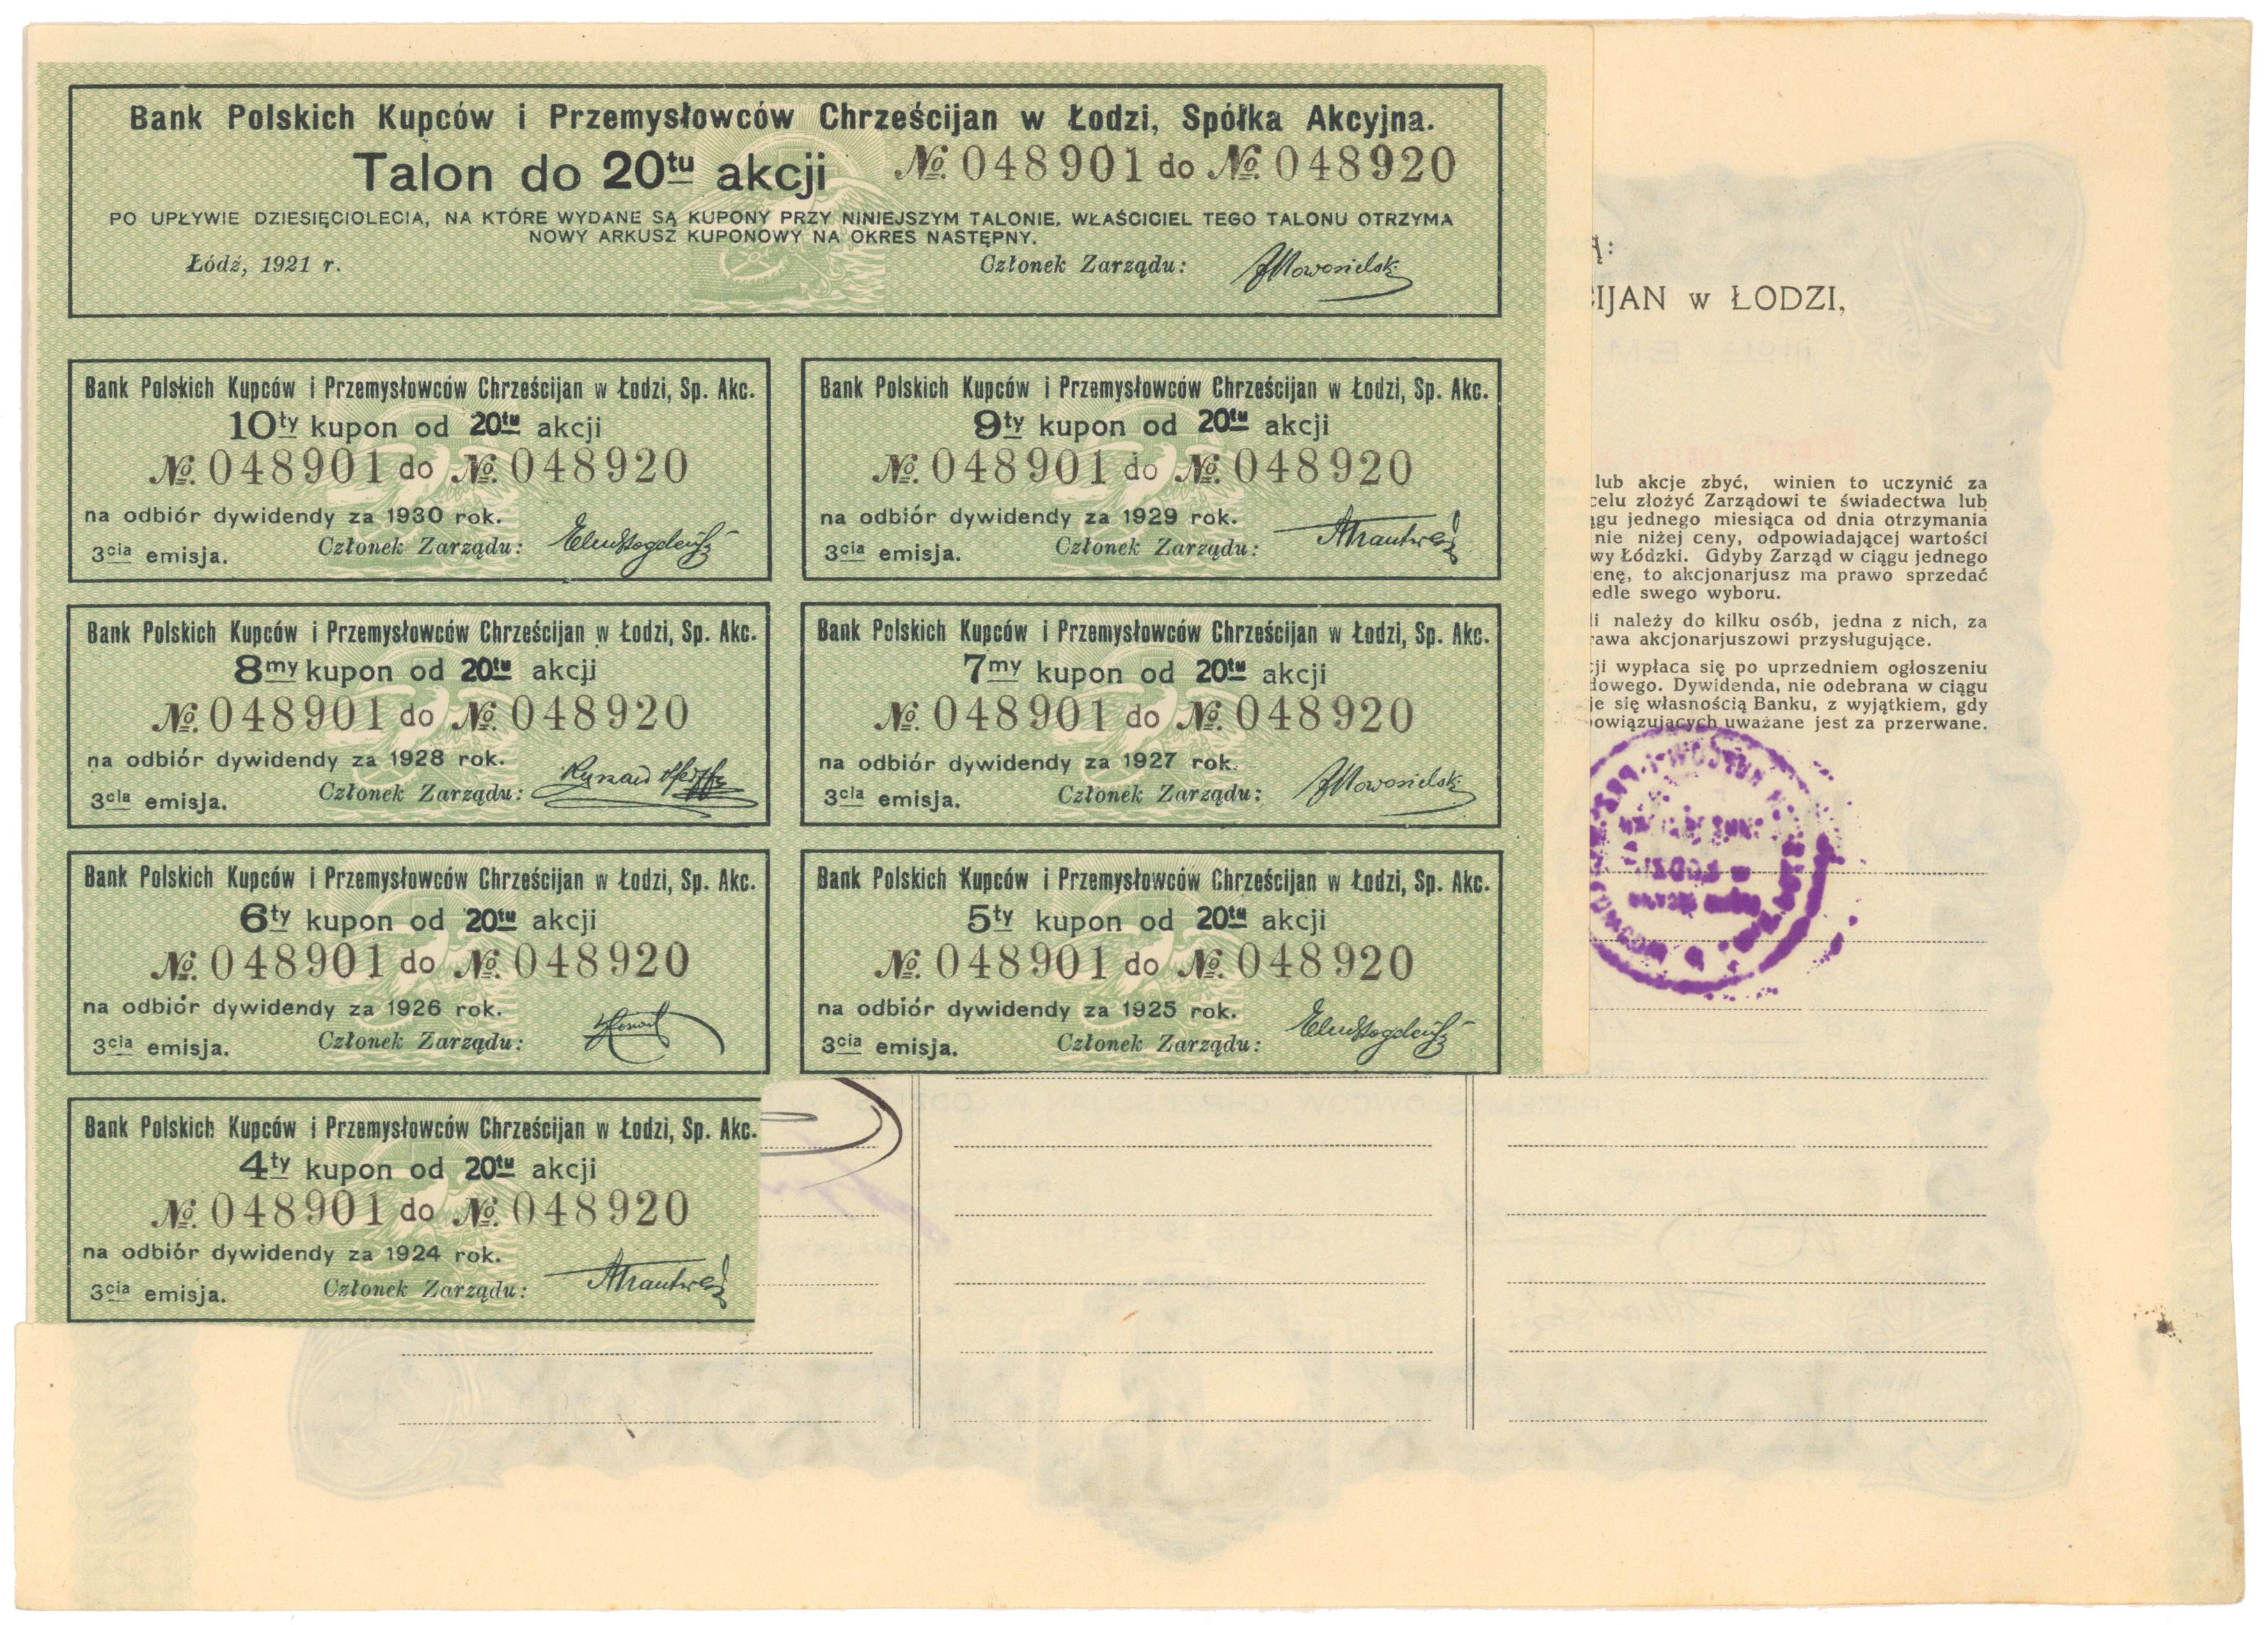 Bank Polskich Kupców i Przemysłowców Chrześcijan w Łodzi, Spółka Akcyjna.
Talon do 20tu akcji № 048901 do № 048920
PO UPŁYWIE DZIESIĘCIOLECIA, NA KTÓRE WYDANE SĄ KUPONY PRZY NINIEJSZYM TALONIE, WŁAŚCICIEL TEGO TALONU OTRZYMA
NOWY ARKUSZ KUPONOWY NA OKRES NASTĘPNY.
Łódź, 1921 r. Członek Zarządu:
Bank Polskich Kupców i Przemysłowców Chrześcijan w Łodzi, Sp. Akc.
10ty kupon od 20tu akcji
№ 048901 do № 048920
na odbiór dywidendy za 1930 rok.
3cia emisja. Członek Zarządu:
Bank Polskich Kupców i Przemysłowców Chrześcijan w Łodzi, Sp. Akc.
9ty kupon od 20tu akcji
№ 048901 do № 048920
na odbiór dywidendy za 1929 rok.
3cia emisja. Członek Zarządu:
Bank Polskich Kupców i Przemysłowców Chrześcijan w Łodzi, Sp. Akc.
8my kupon od 20tu akcji
№ 048901 do № 048920
na odbiór dywidendy za 1928 rok.
3cia emisja. Członek Zarządu:
Bank Polskich Kupców i Przemysłowców Chrześcijan w Łodzi, Sp. Akc.
7my kupon od 20tu akcji
№ 048901 do № 048920
na odbiór dywidendy za 1927 rok.
3cia emisja. Członek Zarządu:
Bank Polskich Kupców i Przemysłowców Chrześcijan w Łodzi, Sp. Akc.
6ty kupon od 20tu akcji
№ 048901 do № 048920
na odbiór dywidendy za 1926 rok.
3cia emisja. Członek Zarządu:
Bank Polskich Kupców i Przemysłowców Chrześcijan w Łodzi, Sp. Akc.
5ty kupon od 20tu akcji
№ 048901 do № 048920
na odbiór dywidendy za 1925 rok.
3cia emisja. Członek Zarządu:
Bank Polskich Kupców i Przemysłowców Chrześcijan w Łodzi, Sp. Akc.
4ty kupon od 20tu akcji
№ 048901 do № 048920
na odbiór dywidendy za 1924 rok.
3cia emisja. Członek Zarządu:
IJAN w ŁODZI,
lub akcje zbyć, winien to uczynić za
celu złożyć Zarządowi te świadectwa lub
gu jednego miesiąca od dnia otrzymania
nie niżej ceny, odpowiadającej wartości
wy Łódzki. Gdyby Zarząd w ciągu jednego
enę, to akcjonarjusz ma prawo sprzedać
edle swego wyboru.
li należy do kilku osób, jedna z nich, za
rawa akcjonarjuszowi przysługujące.
ji wypłaca się po uprzedniem ogłoszeniu
dowego. Dywidenda, nie odebrana w ciągu
je się własnością Banku, z wyjątkiem, gdy
owiązujących uważane jest za przerwane.